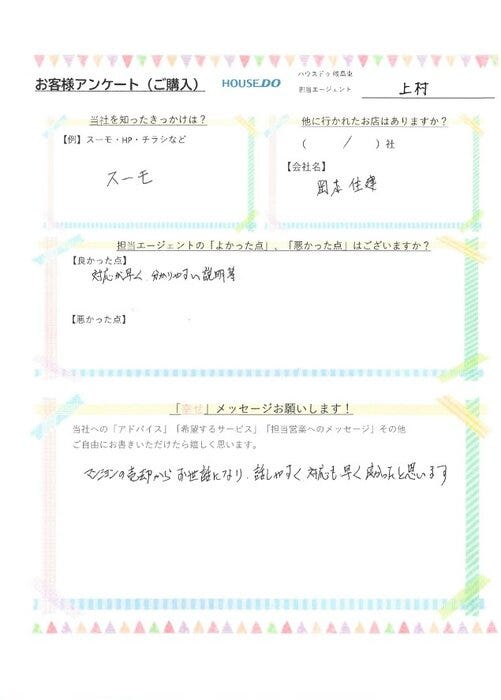 ハウスドゥ岐阜東
お客様アンケート（ご購入） HOUSE DO 担当エージェント 上村
当社を知ったきっかけは？
【例】スーモ・HP・チラシなど
スーモ
他に行かれたお店はありますか？
（ / ）社
【会社名】
岡本住建
担当エージェントの「よかった点」、「悪かった点」はございますか？
【良かった点】
対応が早く、分かりやすい説明等
【悪かった点】
「幸せ」メッセージお願いします！
当社への「アドバイス」「希望するサービス」「担当営業へのメッセージ」その他
ご自由にお書きいただけたら嬉しく思います。
マンションの売却からお世話になり、話しやすく対応も早く良かったと思います